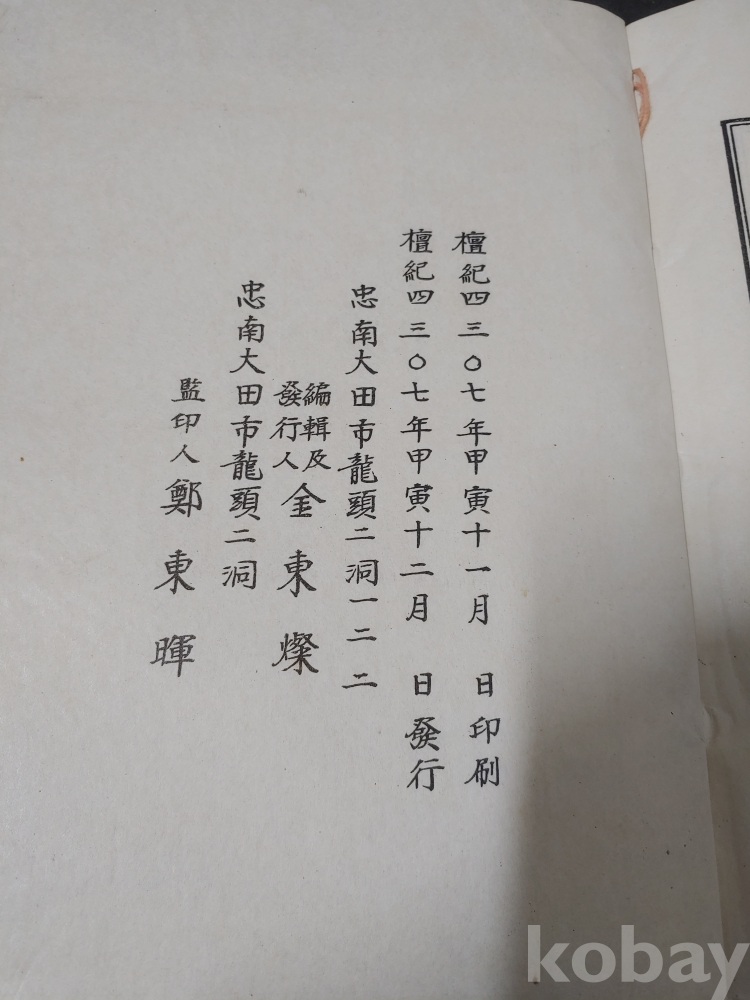 檀紀四三〇七年甲寅十一月 日印刷
檀紀四三〇七年甲寅十二月 日發行
忠南大田市龍頭二洞一二二
編輯及
發行人 金東燦
忠南大田市龍頭二洞
監印人 鄭東暉
kobay